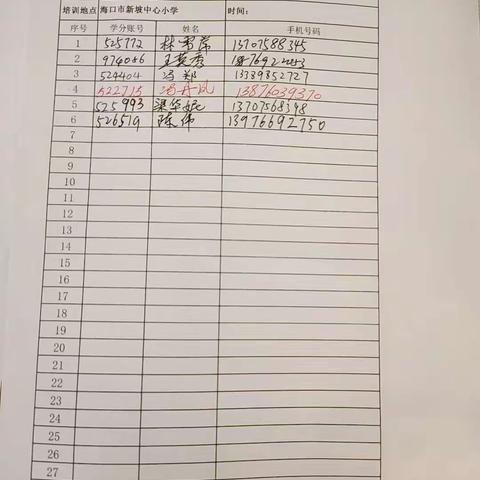 培训地点 海口市新坡中心小学 时间:
序号 学分账号 姓名 手机号码
1 525772 林 13707588345
2 974086 王英
3 524404 冯郑 13389852727
4 522715 冯丹凤 13876039370
5 525993 梁华 13707568398
6 526519 陈伟 13976692750
7
8
9
10
11
12
13
14
15
16
17
18
19
20
21
22
23
24
25
26
27